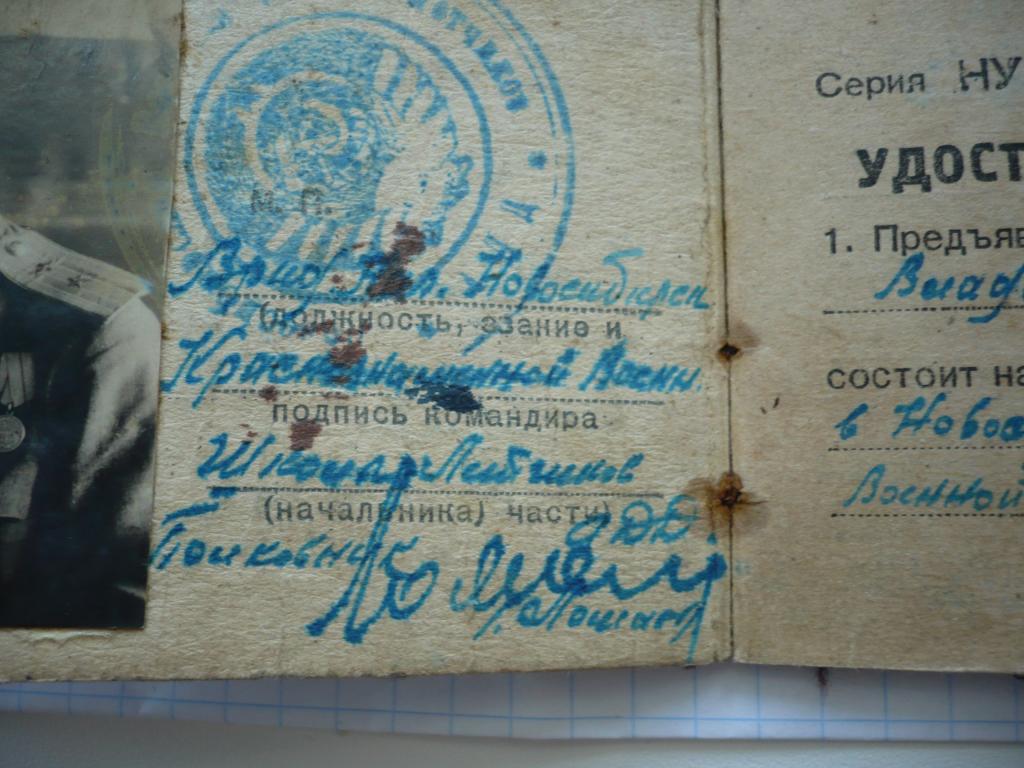 ЛЕТЧИКОВ * А
М. П.
Врид Нач. Новосибирск
(должность, звание и
Краснознаменной Воен.
подпись командира
Школы Летчиков
(начальника) части)
АДД.
Полковник
Серия НУ
УДОСТ
1. Предъяв
Влад
состоит на
в Новос
Военной